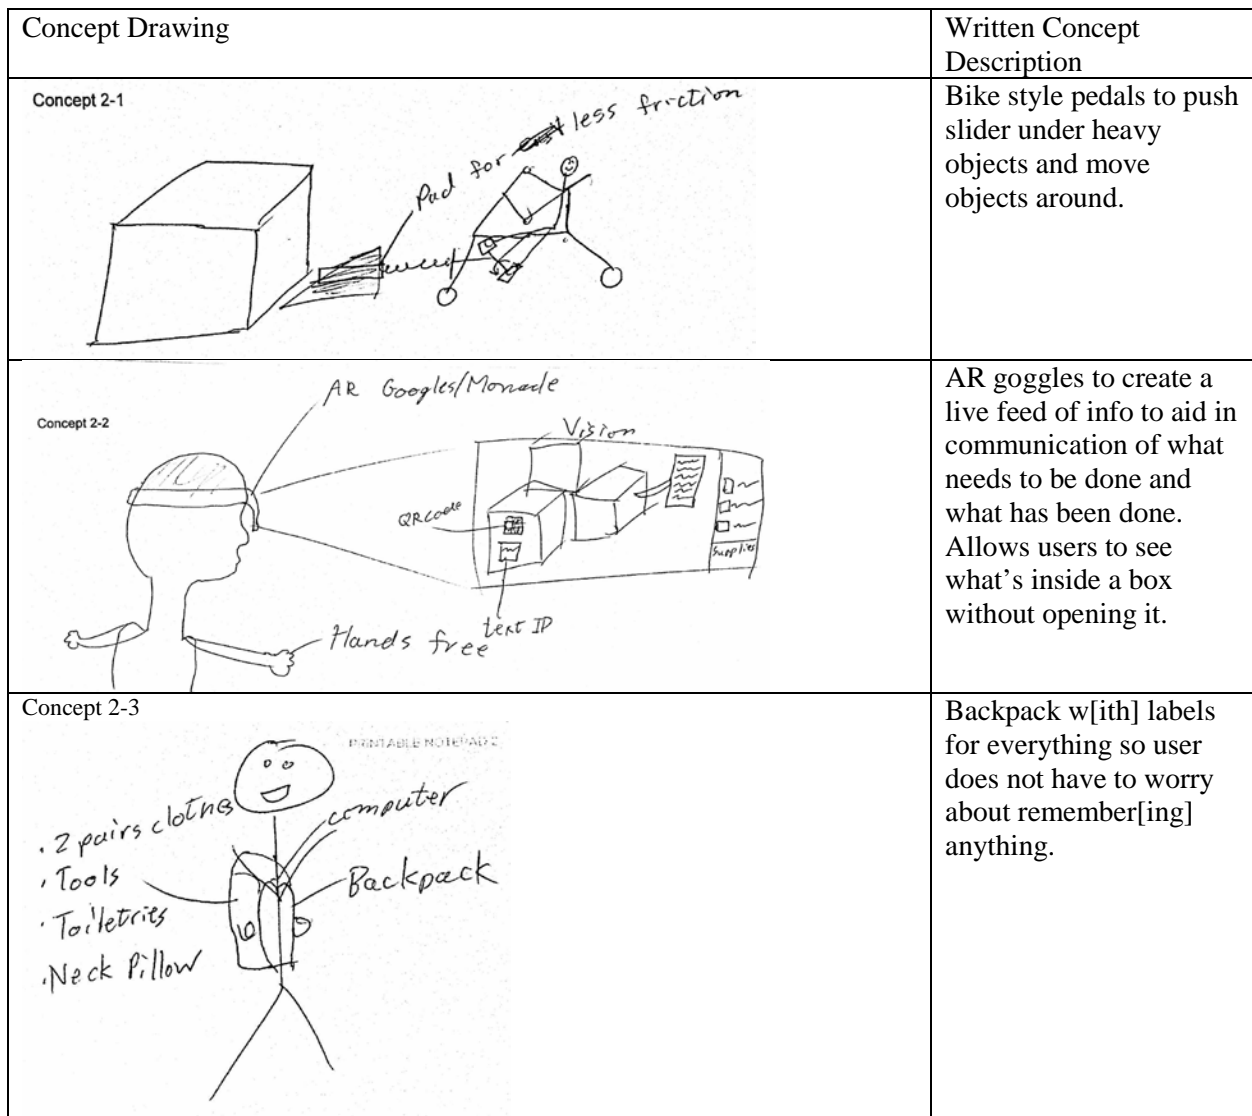 Concept Drawing
Written Concept
Description
Concept 2-1
Pad for less friction
Bike style pedals to push
slider under heavy
objects and move
objects around.
Concept 2-2
AR Googles/Monacle
Vision
QRcode
text ID
Supplies
Hands free
AR goggles to create a
live feed of info to aid in
communication of what
needs to be done and
what has been done.
Allows users to see
what’s inside a box
without opening it.
Concept 2-3
PRINTABLE NOTEPAD 2
· 2 pairs clothes
· Tools
· Toiletries
· Neck Pillow
computer
Backpack
Backpack w[ith] labels
for everything so user
does not have to worry
about remember[ing]
anything.